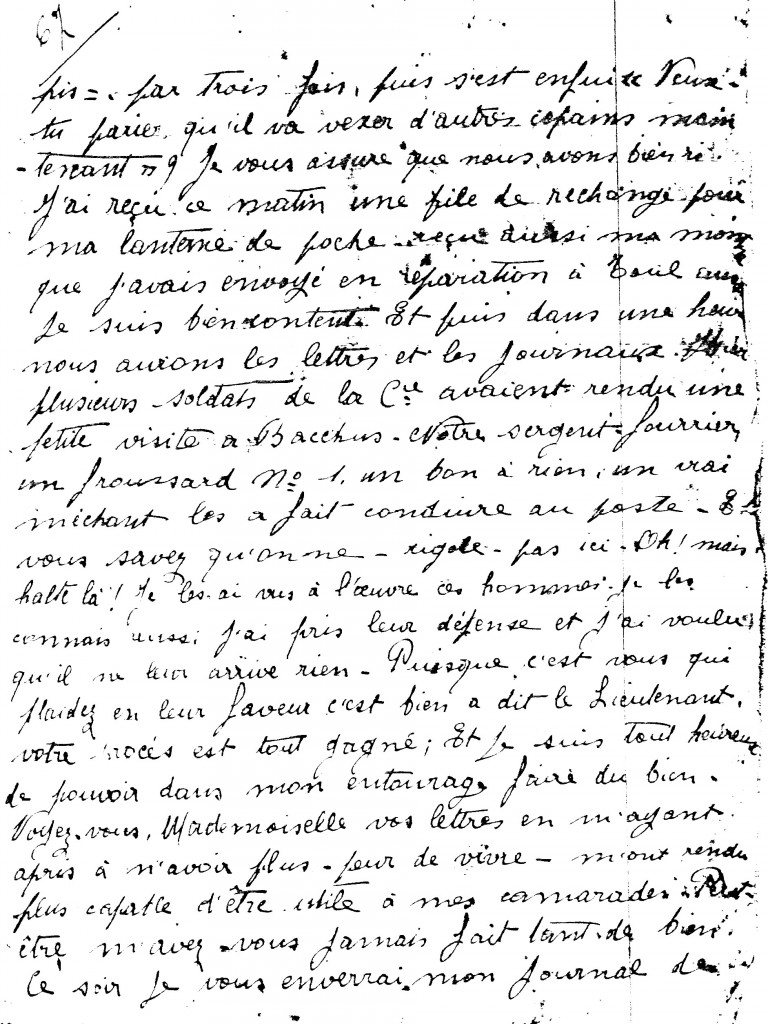 67
pis = par trois fois, puis s'est enfui « Veux-
tu parier qu'il va vexer d'autres copains main
-tenant » ? Je vous assure que nous avons bien ri.
J'ai reçu ce matin une pile de rechange pour
ma lanterne de poche - reçu aussi ma
que j'avais envoyé en réparation à Toul
Je suis bien content. Et puis dans une heure
nous aurons les lettres et les journaux. Hier
plusieurs soldats de la Cie avaient rendu une
petite visite a Bacchus - Notre sergent-fourrier,
un froussard No 1, un bon à rien, un vrai
méchant les a fait conduire au poste - Et
vous savez qu'on ne - rigole - pas ici - Oh! mais
halte là! Je les ai vus à l'œuvre ces hommes. Je les
connais aussi j'ai pris leur défense et j'ai voulu
qu'il ne leur arrive rien - Puisque c'est vous qui
plaidez en leur faveur c'est bien a dit le Lieutenant.
votre procès est tout gagné; Et je suis tout heureux
de pouvoir dans mon entourage faire du bien.
Voyez-vous, Mademoiselle vos lettres en m'ayant
apris à n'avoir plus - peur de vivre - m'ont rendu
plus capable d'être utile à mes camarades. Peut-
être m'avez-vous jamais fait tant de bien.
Ce soir je vous enverrai mon journal de